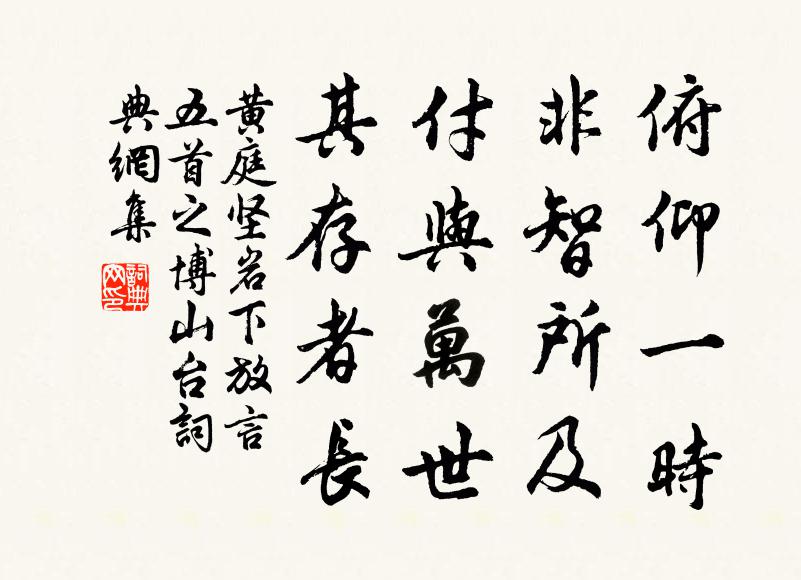 俯仰一時
非智所及
付與萬世
其存者長
黄庭坚岩下放言
五首之博山台詞
典網集
詞典
网印